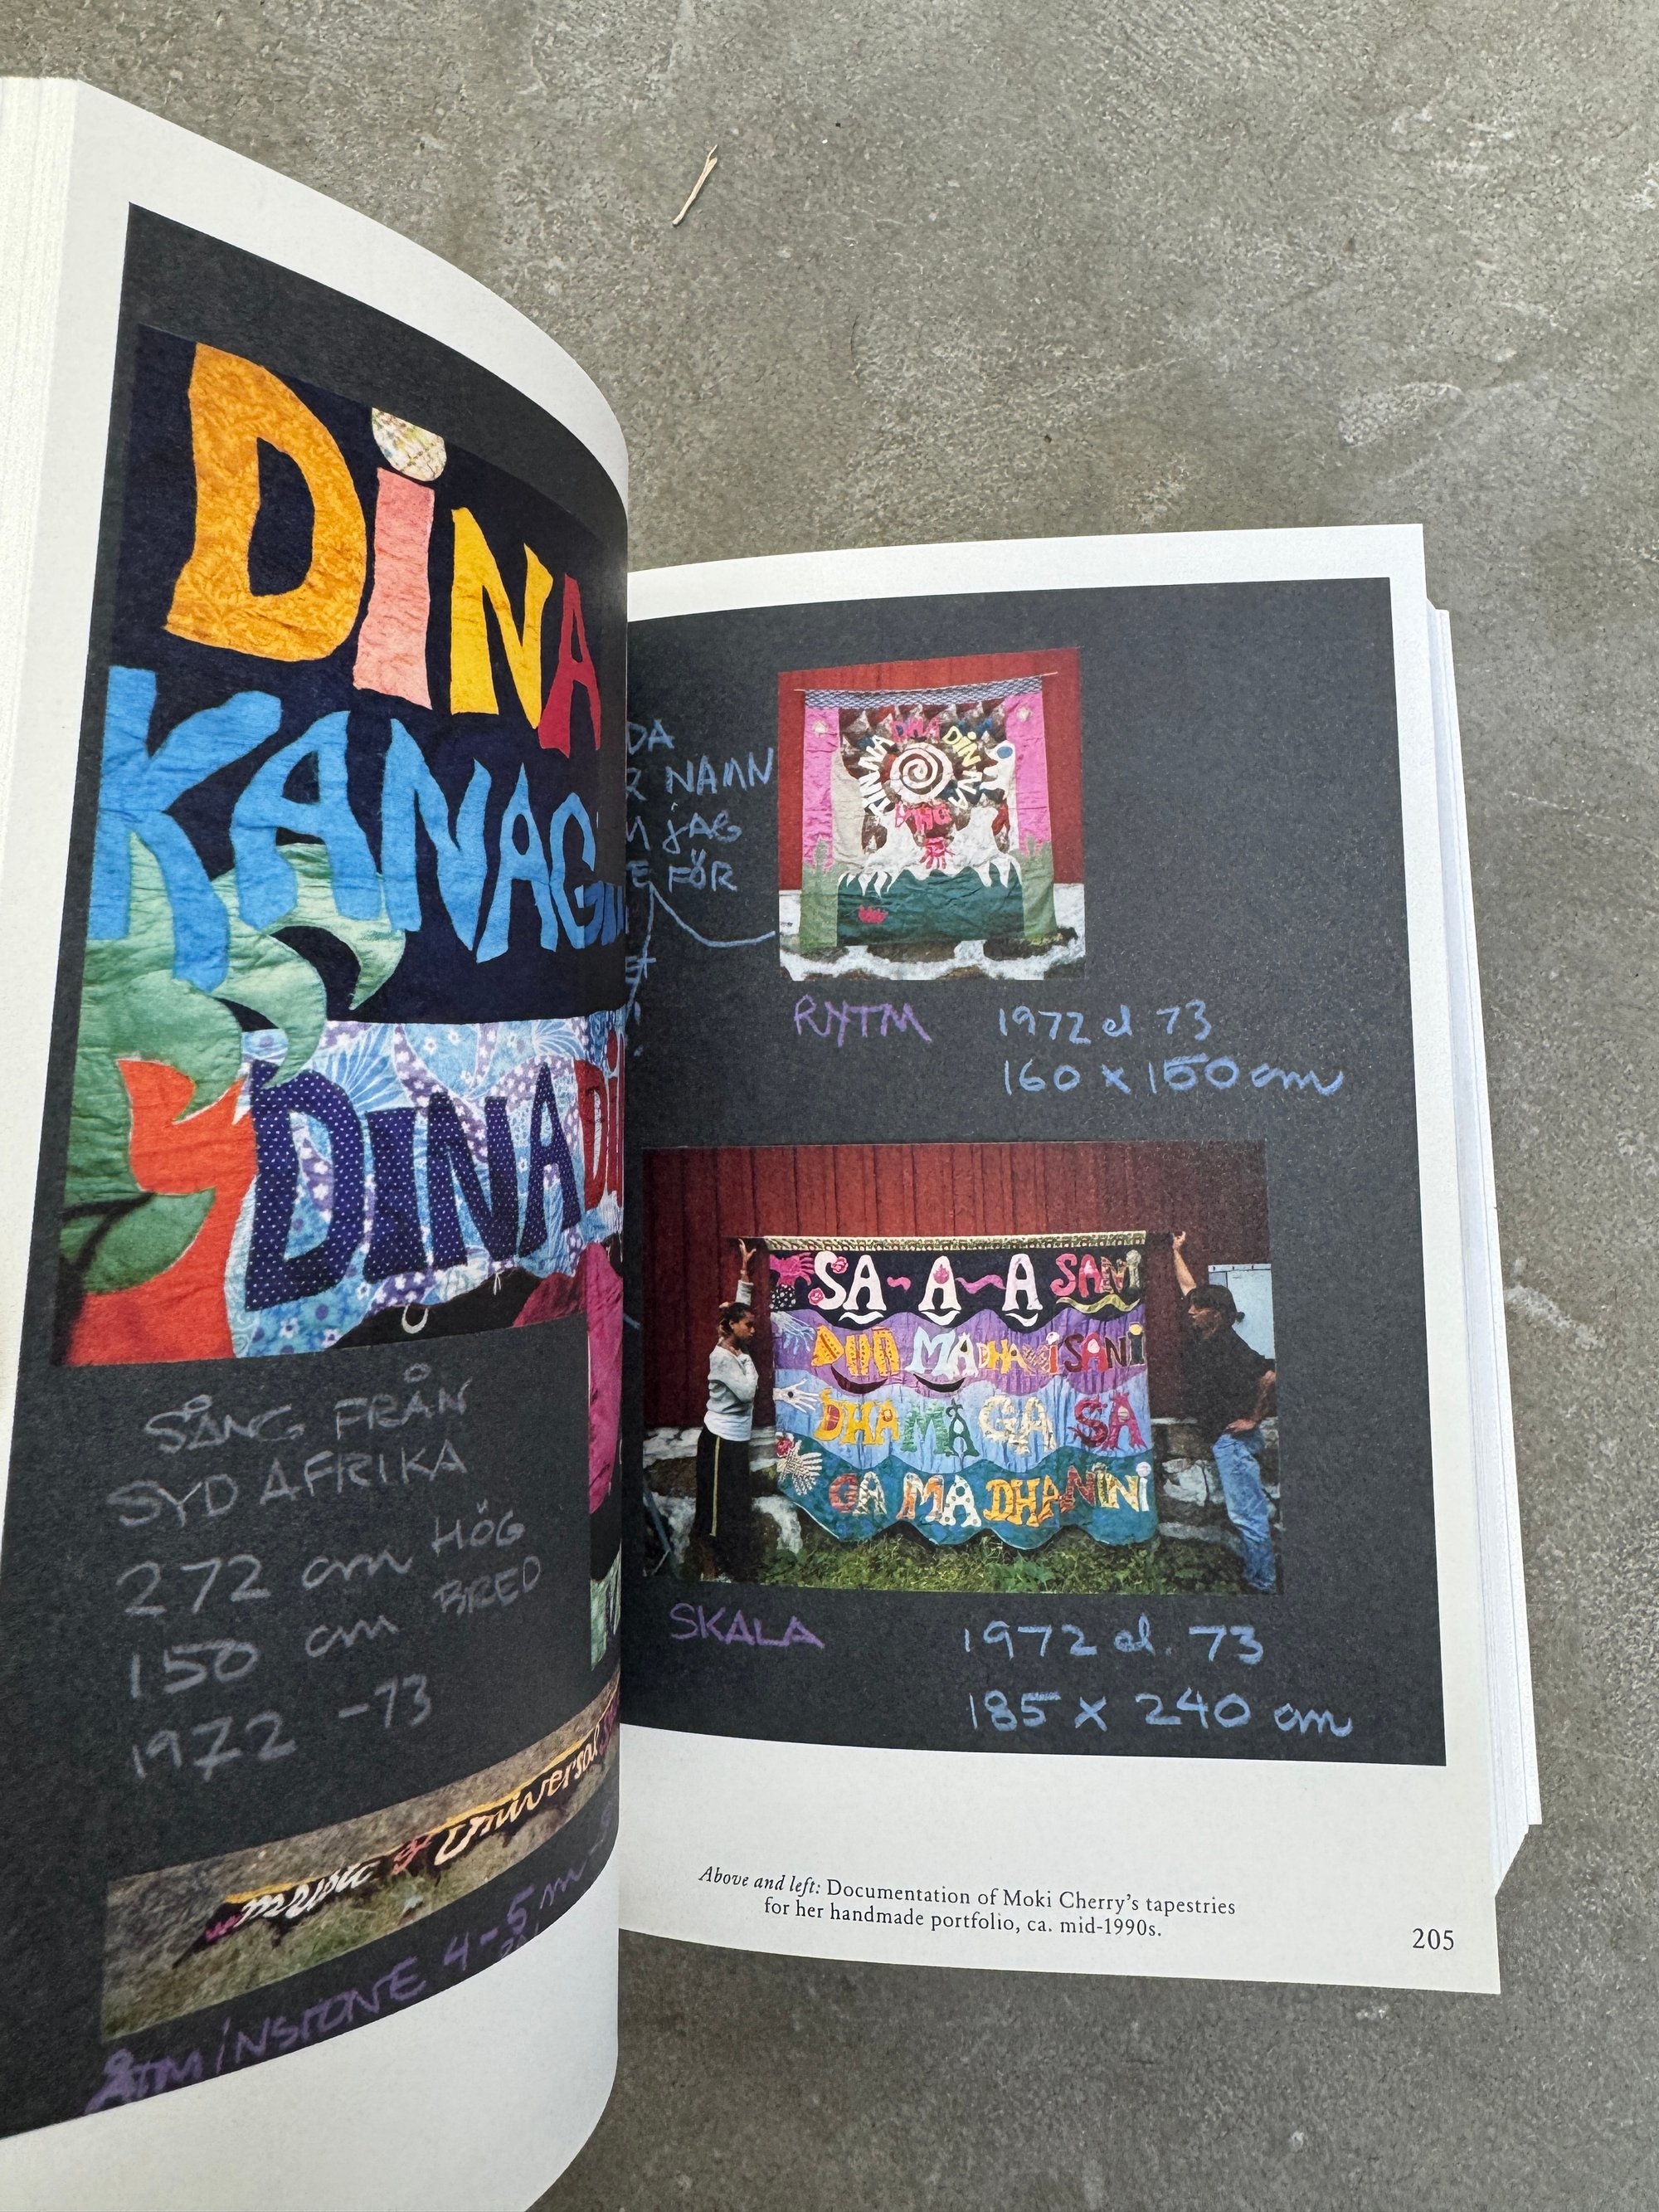 DiNA
KANAG
DINA
SÅNG FRÅN
SYD AFRIKA
272 cm HÖG
150 cm BRED
1972 -73
music & universal
ÅTMINSTONE 4-5 m
DA
R NAMN
M jAG
E FÖR
ET
DHA DiN
RYTM 1972 el 73
160 x 150 cm
SA-A-A SANi
MADHANiSANi
DHAMAGA SA
GA MA DHANiNi
SKALA 1972 el. 73
185 x 240 cm
Above and left: Documentation of Moki Cherry's tapestries
for her handmade portfolio, ca. mid-1990s.
205